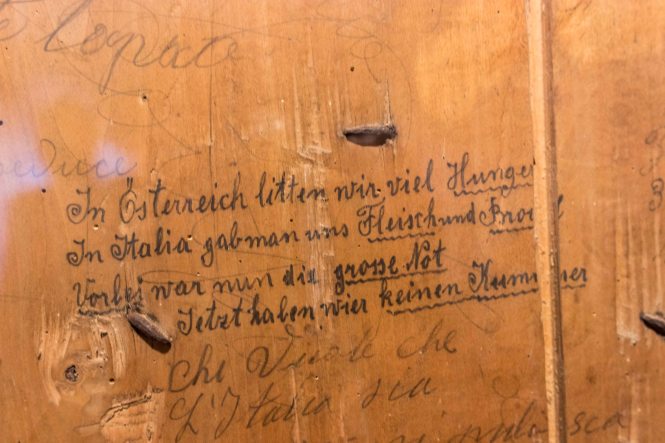 In Österreich litten wir viel Hunger
In Italia gab man uns Fleisch und Brod
Vorbei war nun die grosse Not
Jetzt haben wier keinen Kummer
Chi Vuole che
L'Italia sia